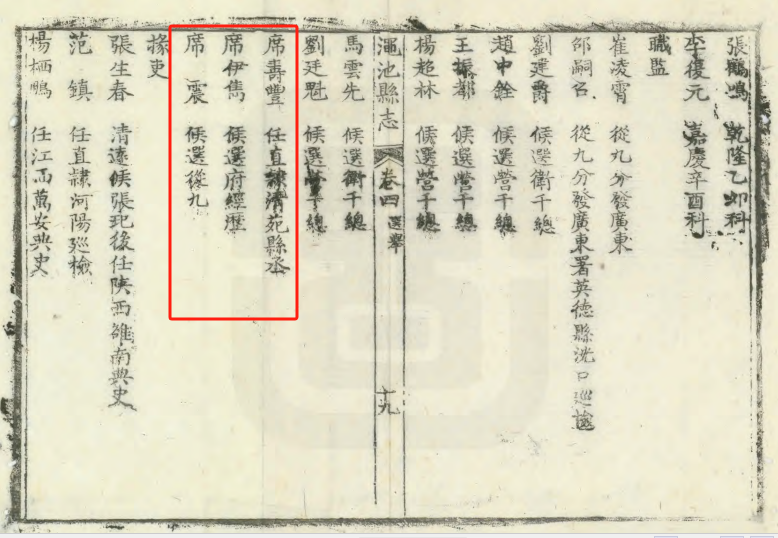 張鶴鳴 乾隆乙卯科
李復元 嘉慶辛酉科
職監
崔凌霄 從九分發廣東
邵嗣名 從九分發廣東署英德縣洸口廵檢
劉建爵 候選衛千總
趙中銓 候選營千總
王振都 候選營千總
楊超林 候選營千總
澠池縣志 卷四 選舉 十九
馬雲先 候選衛千總
劉廷魁 候選營千總
席壽豐 任直隷清苑縣丞
席伊雋 候選府經歷
席震 候選從九
掾吏
張生春 清遠候張玘後任陝西雒南典史
范鎮 任直隷河陽廵檢
楊栖鵬 任江西萬安典史